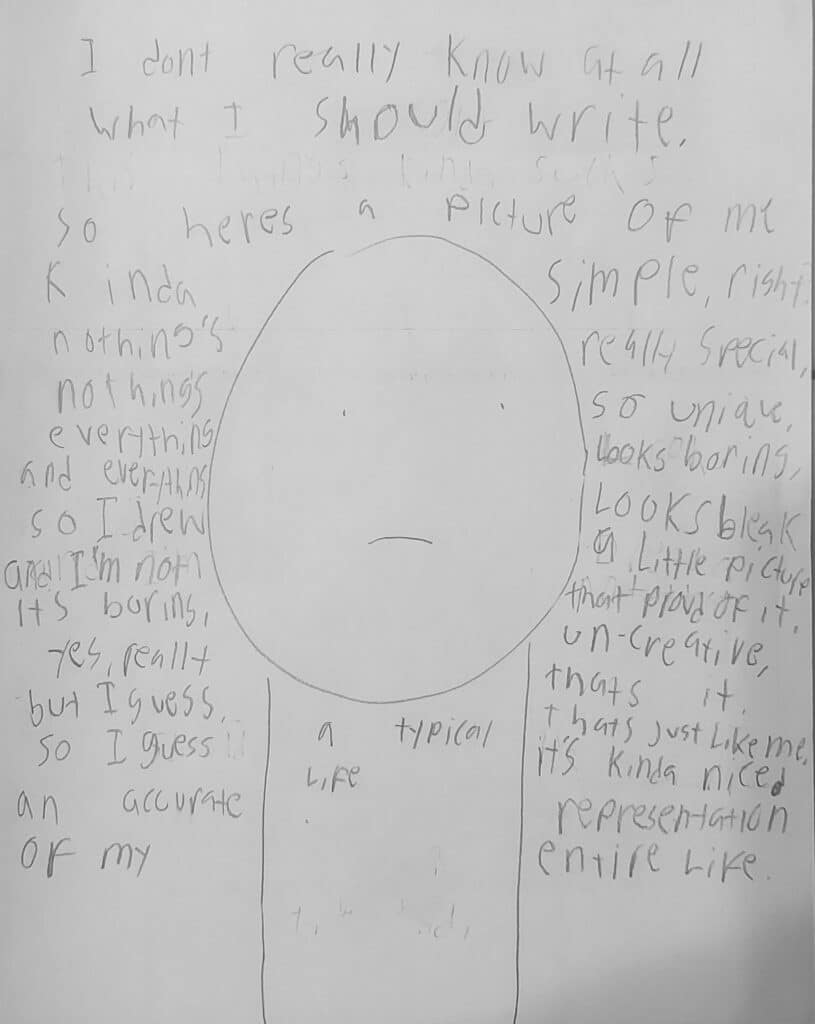 I dont really know at all
what I should write.
so heres a picture of me
Kinda simple, right.
nothing's really special,
nothings so unique,
everything looks boring,
and everything looks bleak
so I drew a little picture
and I'm not that proud of it.
its boring, un-creative,
yes, really thats it.
but I guess, thats just like me,
so I guess it's kinda nice,
a typical
life
an accurate representation
of my entire life.